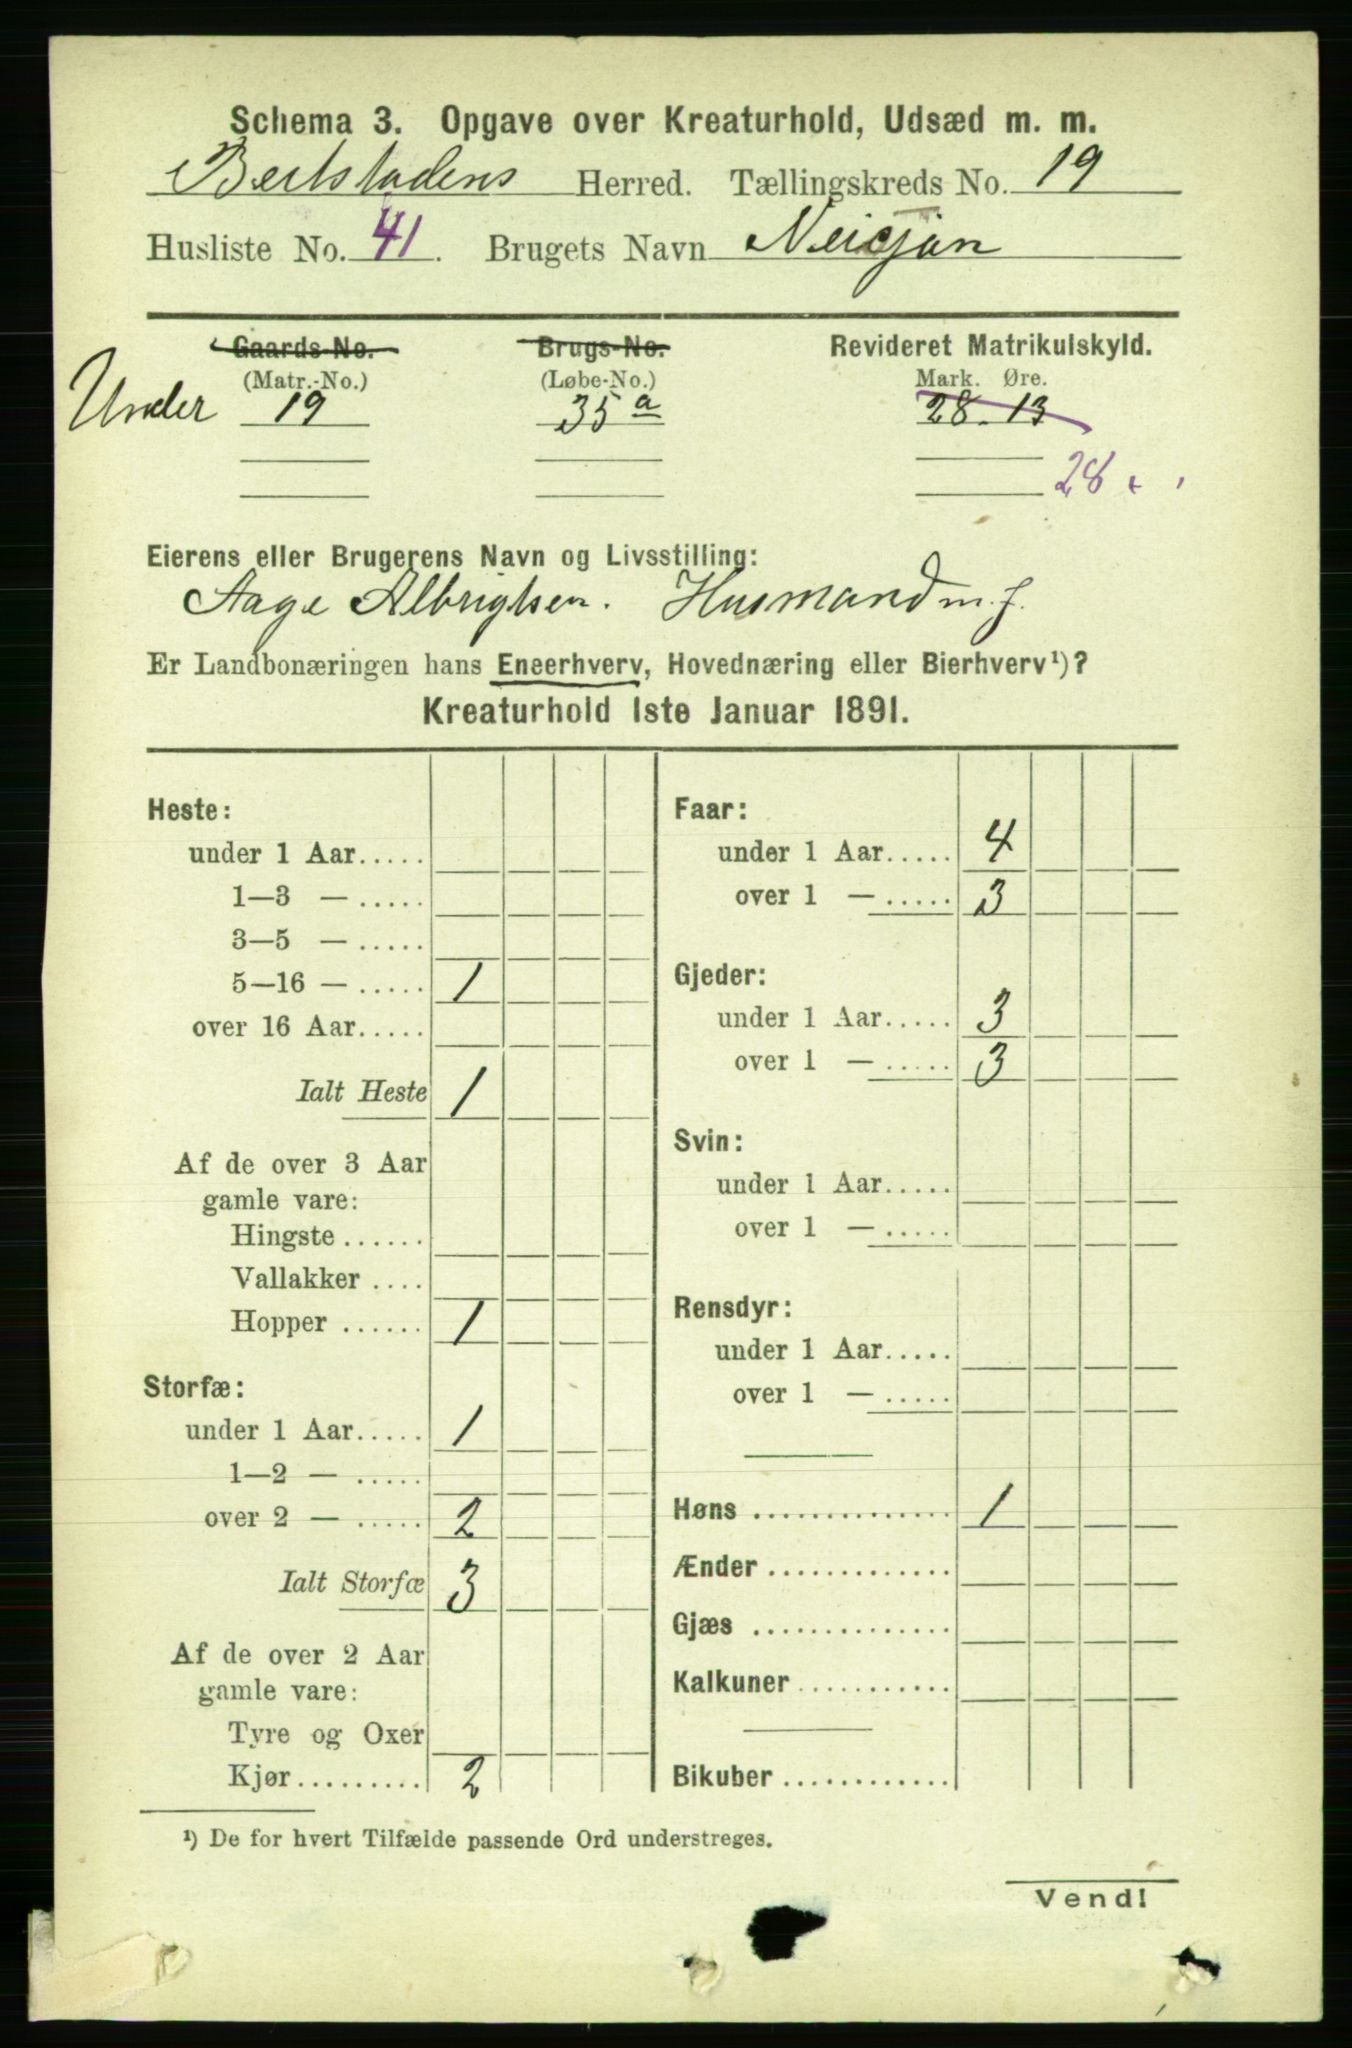 Schema 3. Opgave over Kreaturhold, Udsæd m. m.
Beitstadens Herred. Tællingskreds No. 19
Husliste No. 41. Brugets Navn
Gaards-No. Brugs-No. Revideret Matrikulskyld.
(Matr.-No.) (Løbe-No.) Mark. Øre.
Under 19 35 a 28 - 13
28
Eierens eller Brugerens Navn og Livsstilling:
Aage Albrigtsen. Husmand m. j.
Er Landbonæringen hans Eneerhverv, Hovednæring eller Bierhverv¹)?
Kreaturhold 1ste Januar 1891.
Heste:
under 1 Aar.....
1—3 — .....
3—5 — .....
5—16 — ..... 1
over 16 Aar.....
Ialt Heste 1
Af de over 3 Aar
gamle vare:
Hingste ......
Vallakker ....
Hopper ...... 1
Storfæ:
under 1 Aar..... 1
1—2 — .....
over 2 — ..... 2
Ialt Storfæ 3
Af de over 2 Aar
gamle vare:
Tyre og Oxer
Kjør......... 2
Faar:
under 1 Aar..... 4
over 1 — ..... 3
Gjeder:
under 1 Aar..... 3
over 1 — ..... 3
Svin:
under 1 Aar.....
over 1 — .....
Rensdyr:
under 1 Aar.....
over 1 — .....
Høns .............. 1
Ænder .............
Gjæs ..............
Kalkuner ...........
Bikuber ............
¹) De for hvert Tilfælde passende Ord understreges.
Vend!